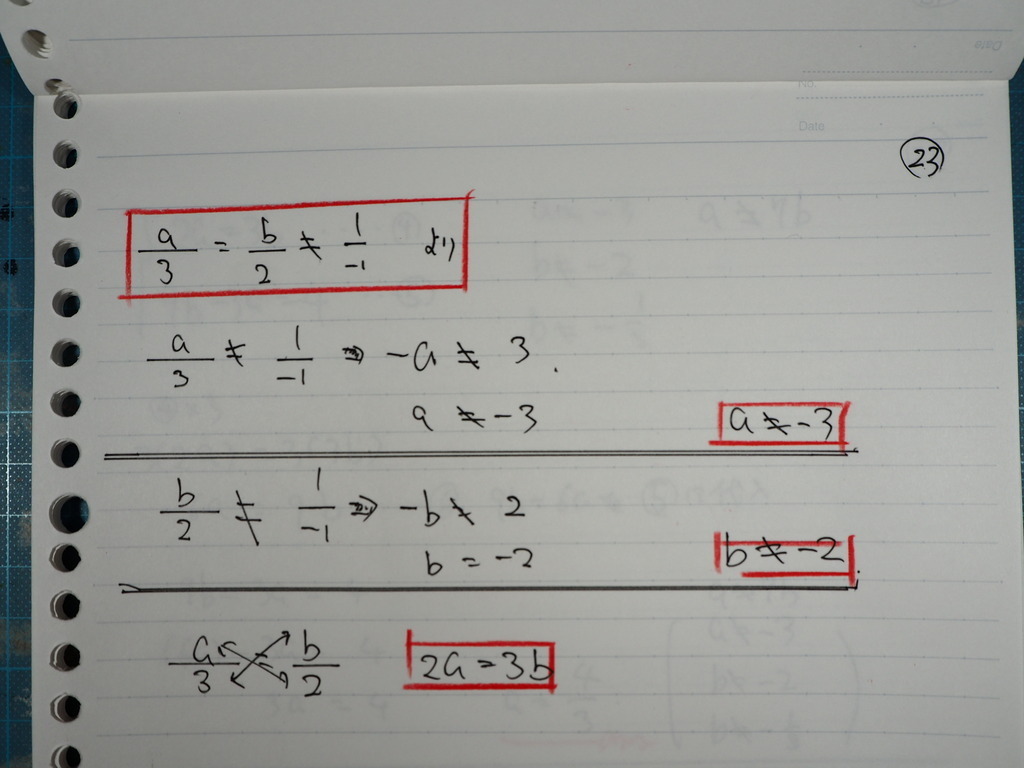 No.
Date
23
a/3 = b/2 ≠ 1/-1 より
a/3 ≠ 1/-1 ⇒ -a ≠ 3.
a ≠ -3 a ≠ -3
b/2 ≠ 1/-1 ⇒ -b ≠ 2
b = -2 b ≠ -2
a/3 = b/2 2a = 3b